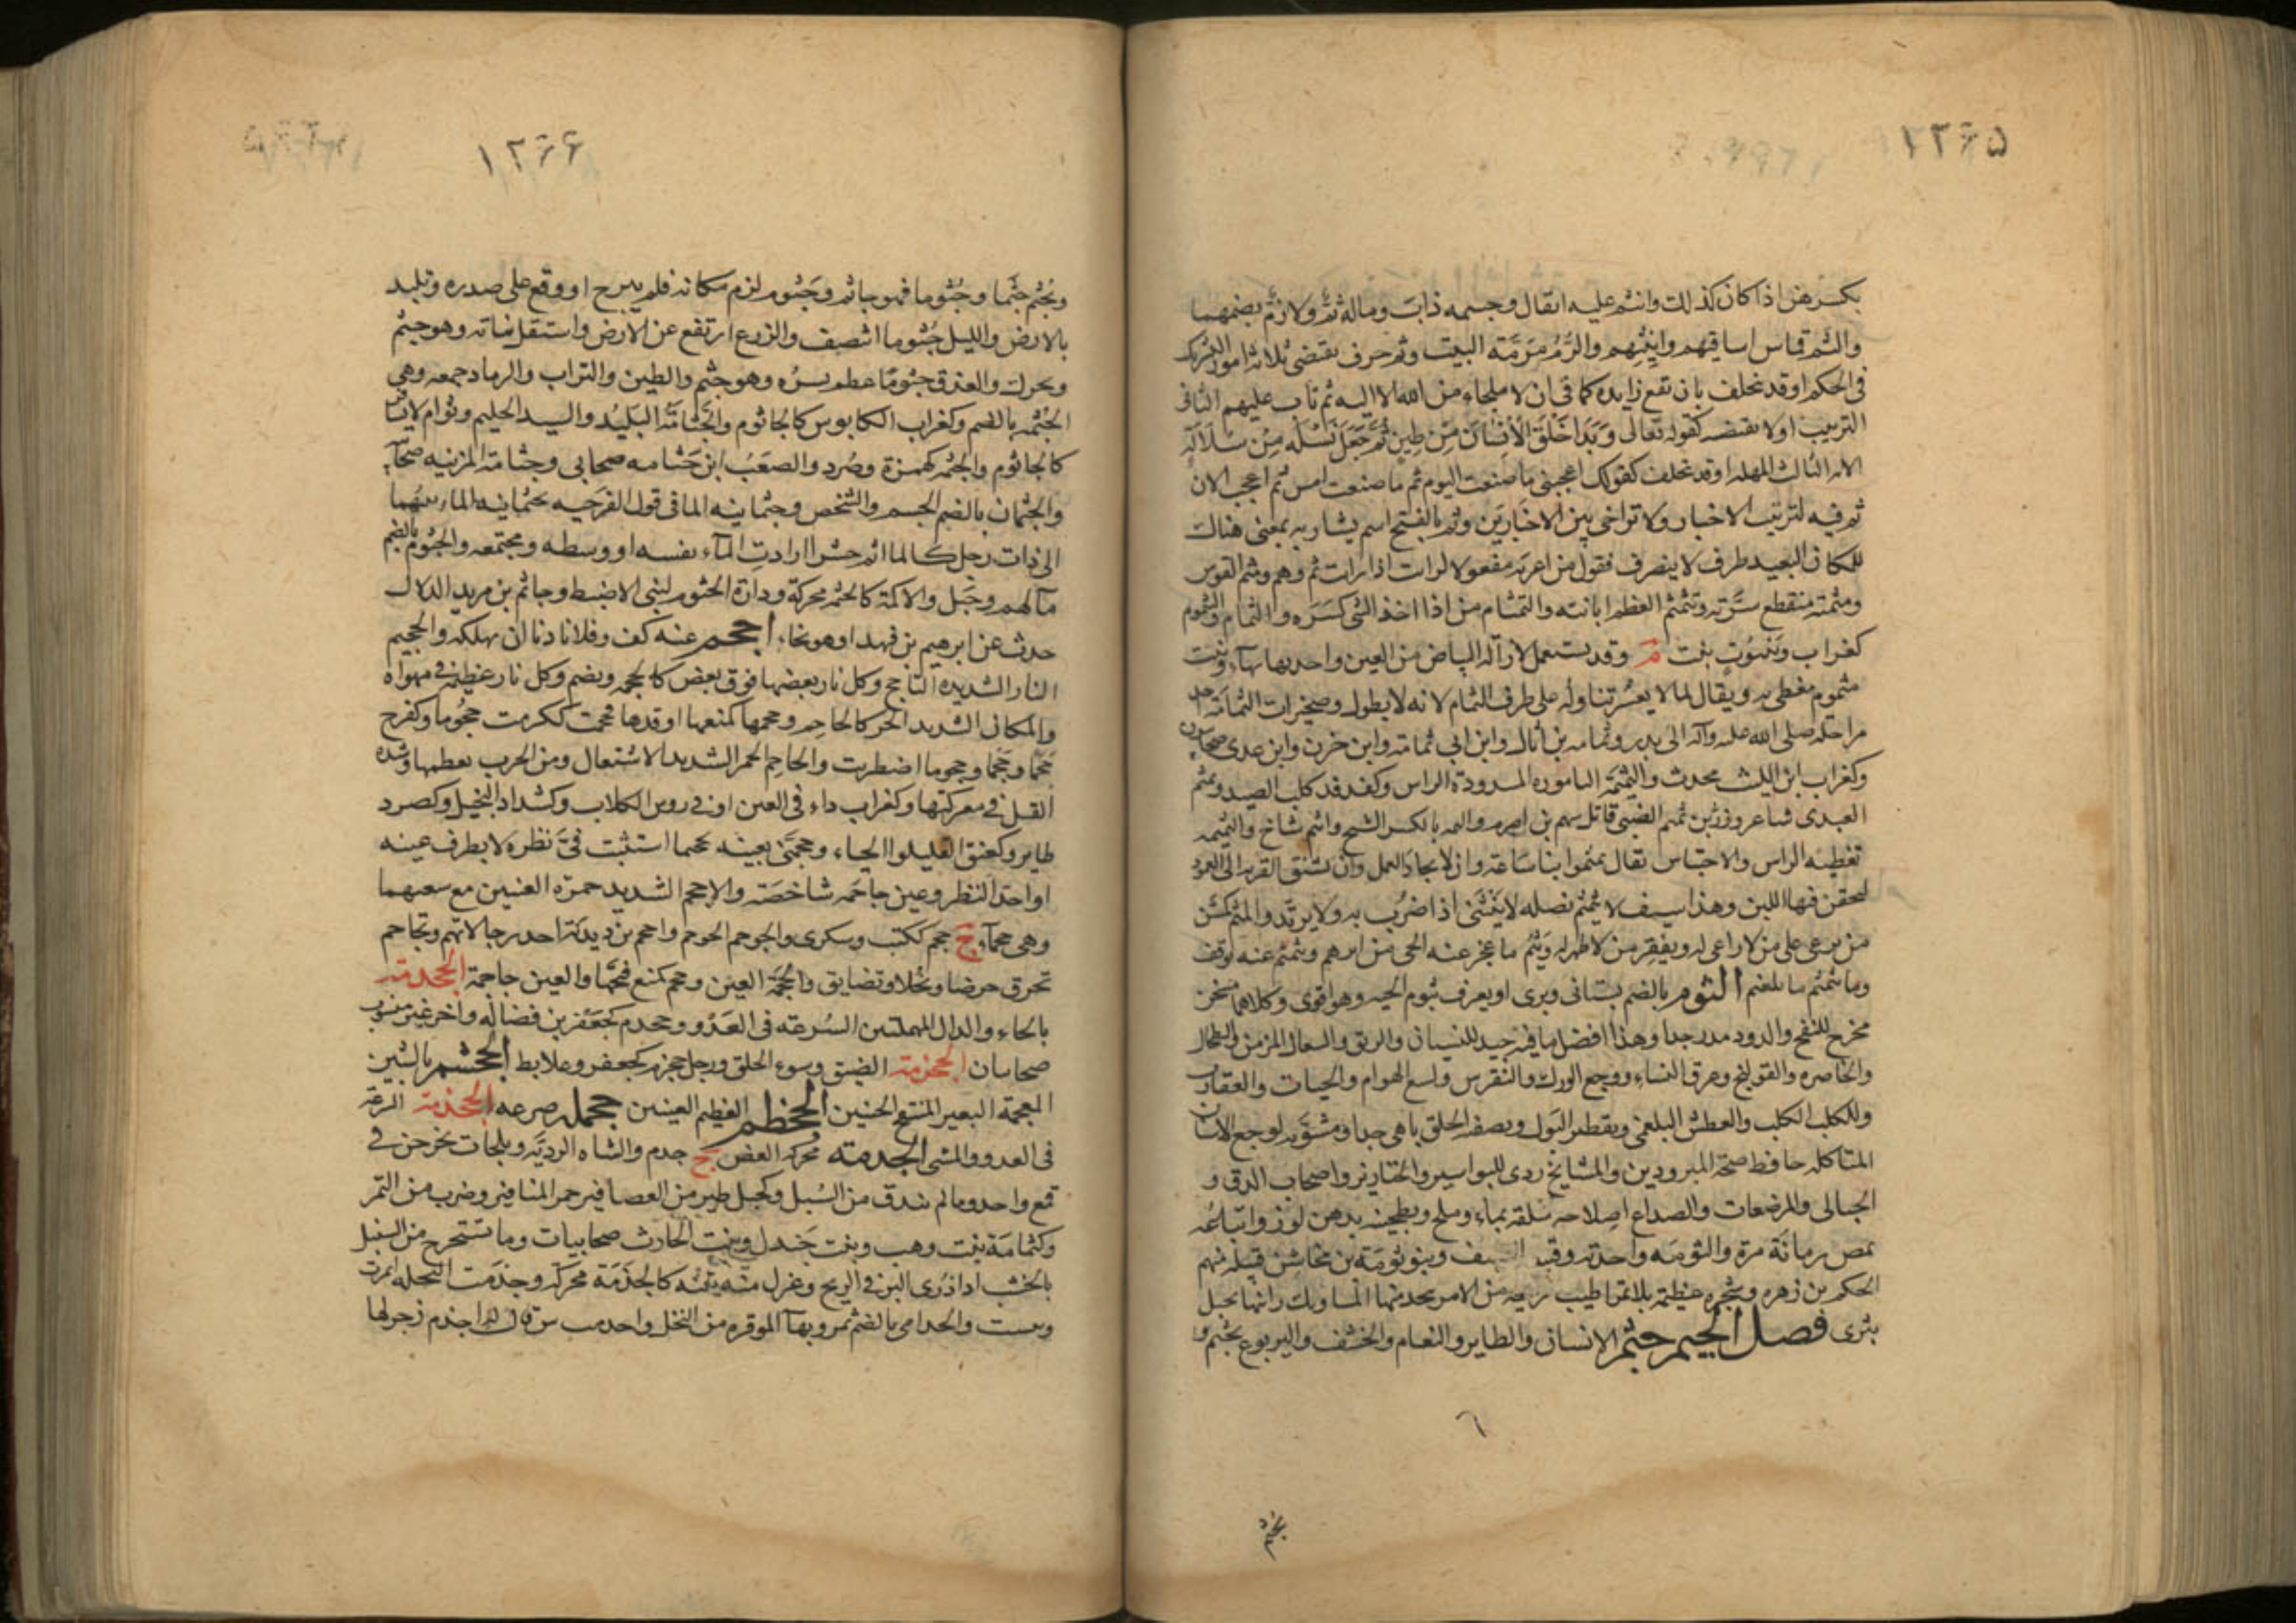 ١٢٦٥
بكسرهن اذا كان كذلك وانثم عليه انثال وجسمه ذاب وماله ثم ولا رم بضمهما
والثم قماش اساقيهم وانيتهم والرم مرمة البيت وثم حرف يقتضى ثلاثة امور التشريك
فى الحكم او قد تخلف بان تقع زايده كما فى ان لا ملجاء من الله الا اليه ثم تاب عليهم الثانى
الترتيب او لا تقتضيه كقوله تعالى وَبَدَا خَلْقَ الْاِنْسَانَ مِنْ طِينٍ ثُمَّ جَعَلَ نَسْلَه مِنْ سُلَالَةٍ
الايه الثالث المهله او قد تخلف كقولك اعجبنى ما صنعت اليوم ثم ما صنعت امس ثم اعجب لان
ثم فيه لترتيب الاخبار ولا تراخى بين الاخبارين وثم بالفتح اسم يشار به بمعنى هناك
للمكان البعيد ظرف لا ينصرف فقول من اعربه مفعولا لرايت اذا رايت ثم وهم ومثم الفرس
ومثمته منقطع سرته وتثمثم العظم ابانته والتمثام من اذا اخذ الشى كسره والثمام واليثموم
كغراب وينبوت نبت م وقد يستعمل لازالة البياض من العين واحدتها بهاء وبيت
مثموم مغطى به ويقال لما لا يعسر تناوله على طرف الثمام لانه لا يطول وصخيرات الثمامة احد
مراحله صلى الله عليه وآله الى بدر وثمامه بن اثال وابن ابى ثمامة وابن حزن وابن عدى صحابيون
وكغراب ابن الليث محدث والثميمة التاموره المسدودة الراس وكفدفد كلب الصيد ومثم
العبدى شاعر وزر بن ثميم الضبى قاتل سهم بن اصرم والثمه بالكسر الشيخ وانثم شاخ والثمثمه
تغطيه الراس والاحتباس يقال ثمثموا بنا ساعة وان لا يجاد العمل وان تشنق القربه الى العمود
ليحقن فيها اللبن وهذا سيف لا يثمثم نصله لا ينثنى اذا ضرب به ولا يرتد والمثم كمسن
من يرعى على من لا راعى له ويفقر من لا ظهر له ويثم ما عجز عنه الحى من امرهم وتثمثم عنه توقف
وما تثمثم ما تلعثم الثوم بالضم بستانى وبرى او يعرف بثوم الحيه وهو اقوى وكلاهما مسخن
مخرج للنفخ والدود مدر جدا وهذا افضل ما فيه جيد للنسيان والربو والسعال المزمن والطحال
والخاصره والقولنج وعرق النساء ووجع الورك والنقرس ولسع الهوام والحيات والعقارب
وللكلب الكلب والعطش البلغمى وتقطير البول وتصفيه الحلق باهى جدا ومشويه لوجع الاسنان
المتاكله حافظ صحة المبرودين والمشايخ ردى للبواسير والخنازير واصحاب الدق و
الحبالى والمرضعات والصداع اصلاحه سلقه بماء وملح وتطجينه بدهن لوز واتباعه
بمص رمانة مرة والثومه واحدته وقبيعه السيف وبنو ثومة بن مخاشن قبيله منهم
الحكم بن زهره وشجره عظيمة بلا ثمر اطيب ريحه من الاس يتخذ منها المساويك راتها بجبل
بثرى فصل الجيم جثم الانسان والطاير والنعام والخشف واليربوع يجثم و
٦
١٢٦٦
ويجثم جثما وجثوما فهو جاثم وجثوم لزم مكانه فلم يبرح او وقع على صدره وتلبد
بالارض والليل جثوما انتصف والزرع ارتفع عن الارض واستقل نباته وهو جثم
ويحرك والعذق جثوما عظم بسره وهو جثم والطين والتراب والرماد جمعه وهى
الجثمه بالضم وكغراب الكابوس كالجاثوم والجثامة البليد والسيد الحليم ونوام لا يسافر
كالجاثوم والجثمه كهمزة وصرد والصعب ابن جثامه صحابى وجثامة المزنيه صحابيه
والجثمان بالضم الجسم والشخص وجثمانيه الما فى قول الفرجيه بجثمانيه الما ربيتهما
الى ذات رجل كالماتم حسرا ارادت الماء نفسه او وسطه ومجتمعه والجثوم بالضم
مآلهم وجبل والاكمة كالجثم محركة ودارة الجثوم لبنى الاضبط وجاثم بن مريد الدلال
حدث عن ابرهيم بن فهد او هو نخا اجحم عنه كف وفلانا دنا ان يهلكه والجحيم
النار الشديده التاجج وكل نار بعضها فوق بعض كالجحمه ويضم وكل نار عظيمة فى مهواه
والمكان الشديد الحر كالجاحم وجحمها كمنعها اوقدها فجحمت ككرمت جحوما وكفرح
جحما وجحما وجحوما اضطرمت والجاحم الجمر الشديد الاشتعال ومن الحرب معظمها وشده
القتل فى معركتها وكغراب داء فى العين او فى روس الكلاب وكشداد البخيل وكصرد
طاير وكعنق القليلوا الحياء وجحمنى بعينه تجحيما استثبت فى نظره لا يطرف عينه
او احد النظر وعين جاحمه شاخصة والاجحم الشديد حمرة العينين مع سعتهما
وهى جحماء ج جحم ككتب وسكرى والجوحم الحوجم واجحم بن دندنة احد رجالاتهم وتجاحم
تحرق حرصا وبخلا وتضايق والجحمة العين وجحم كمنع فتحها والعين جاحمة الجحدمة
بالحاء والدال المهملتين السرعة فى العدو وجحدم كجعفر بن فضاله واخر غير منسوب
صحابيان الجحزمة الضيق وسوء الخلق ورجل جحزم كجعفر وعلابط الجحشم بالشين
المعجمة البعير المنتفخ الجنبين الجحظم العظيم العينين جحمله صرعه الجخدمة السرعة
فى العدو والمشى الجدمة محركه القصير ج جدم والشاه الرديه وبلحات يخرجن فى
قمع واحد وما لم يندق من السنبل وكجبل طير من العصافير حمر المناقير وضرب من التمر
وكثمامة بنت وهب وبنت جندل وبنت الحارث صحابيات وما يستخرج من السنبل
بالخشب اذا ذرى البر فى الريح وعزل منه تبنه كالجدمة محركه وجدمت النخله اثمرت
ويبست والجدامى بالضم تمر وبهاء الموقره من النخل واجدم الفرس قال له اجدم زجر لها